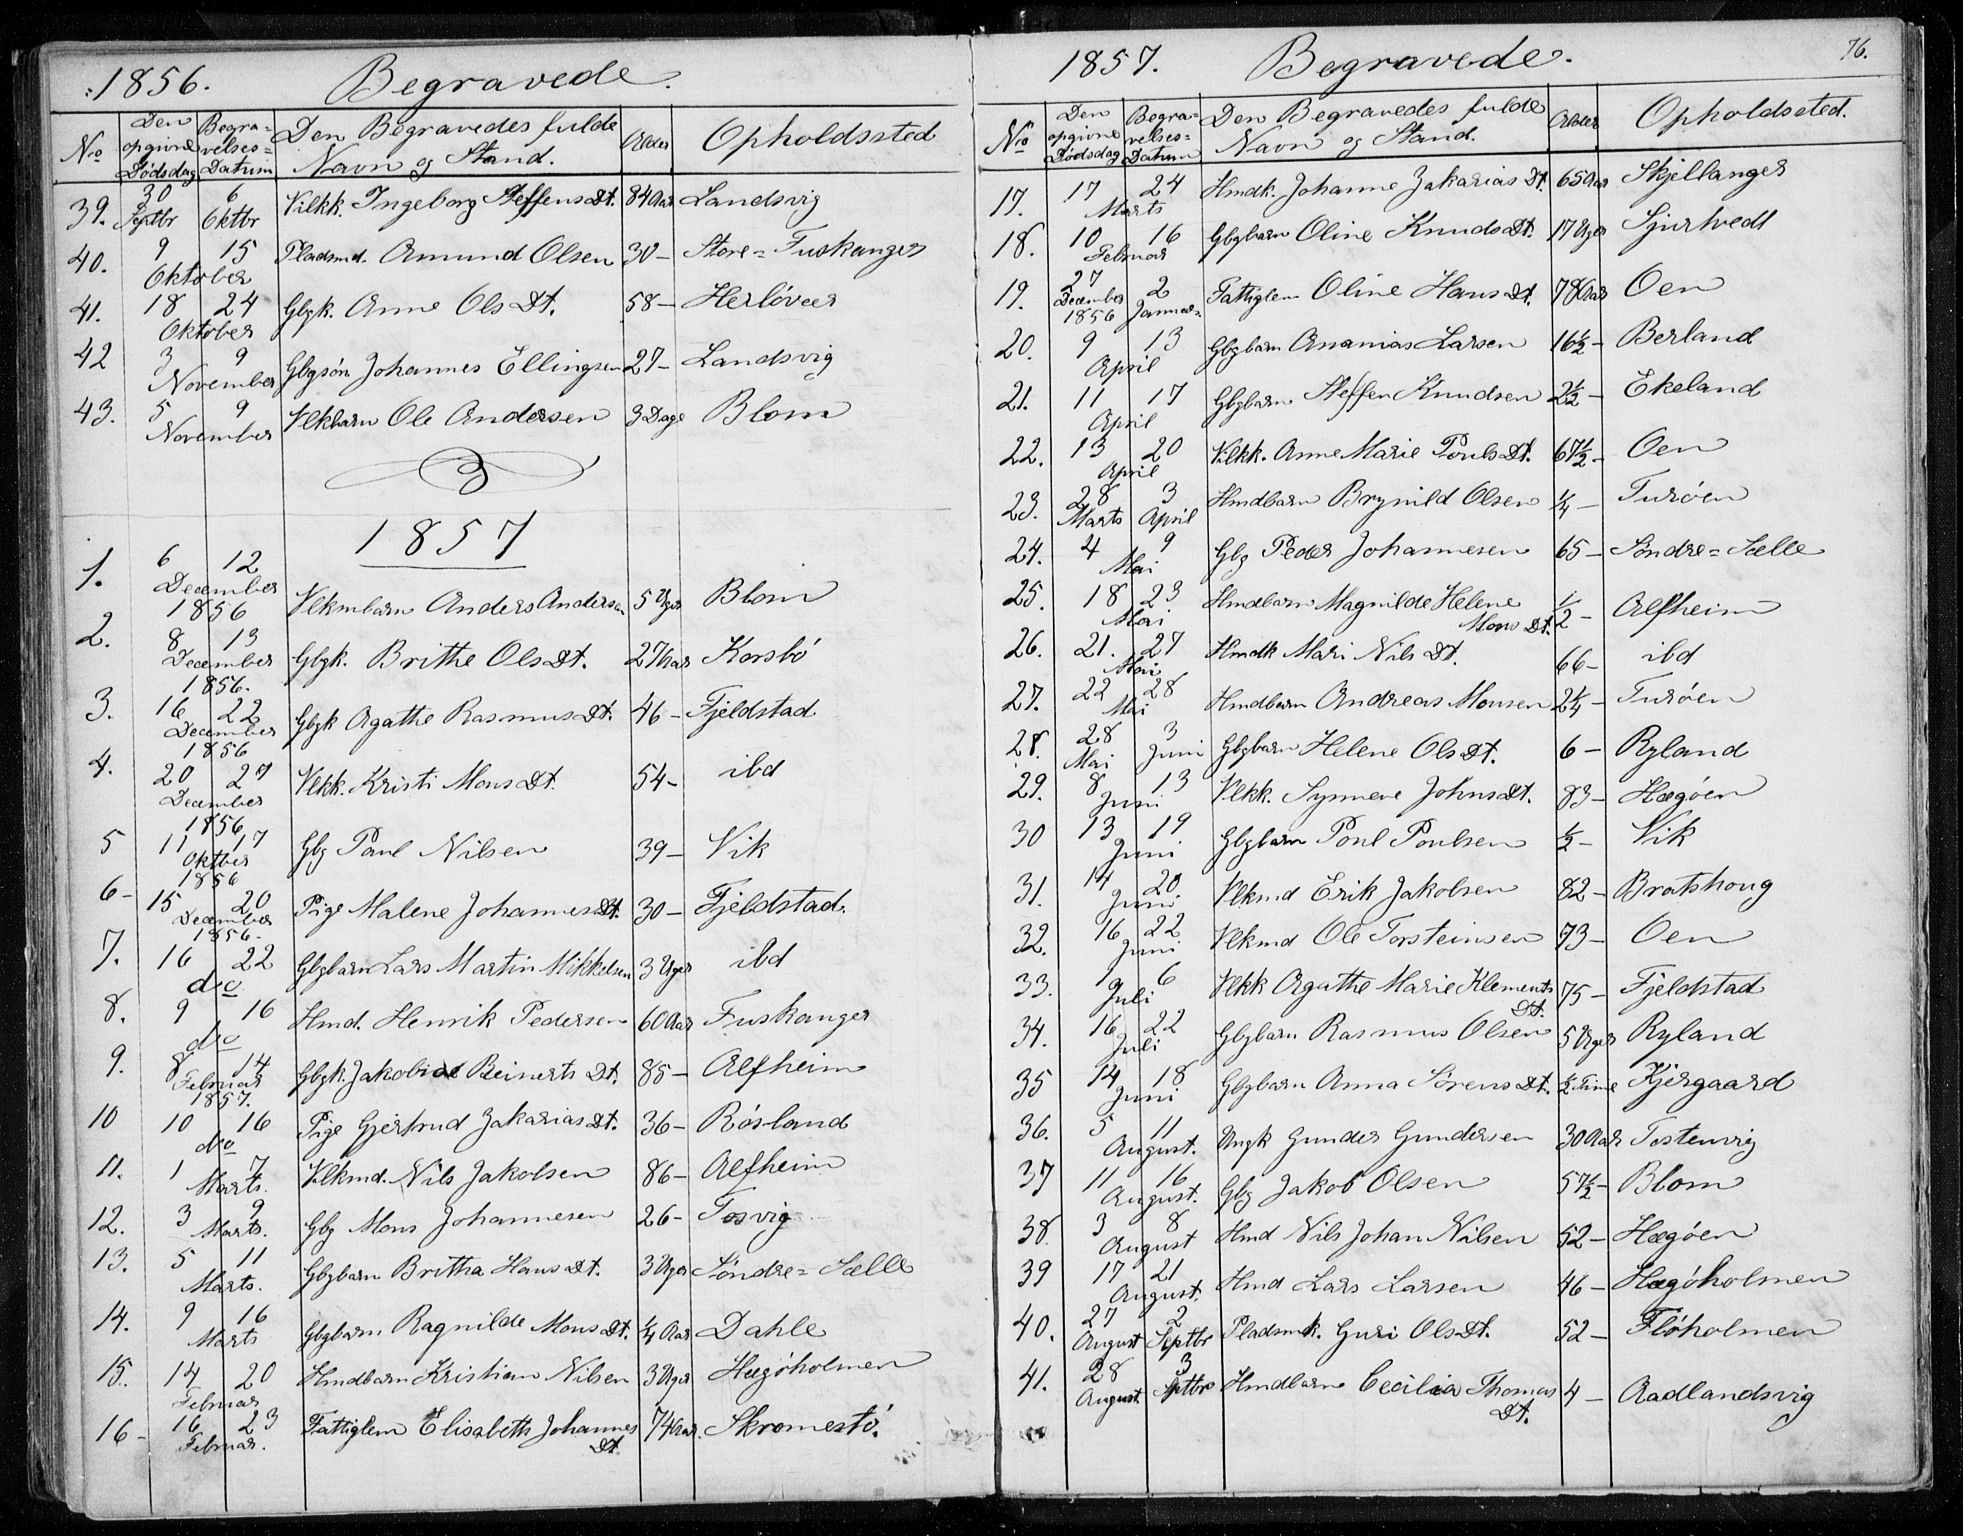 :1856. Begravede.
No | Den opgivne Dødsdag | Begravelses=Datum | Den Begravedes fulde Navn og Stand. | Alder | Opholdssted
39. 30 Septbr 6 Oktbr Vilkk. Ingeborg Steffens Dt. 84 Aar Landsvig
40. 9 15 Oktober Pladsmd. Amund Olsen 30 – Store=Fuskanger
41. 18 24 Oktober Gbgk. Anne Ols Dt. 58 – Herløveer
42 3 9 November Gbgsøn Johannes Ellingsen 27 – Landsvig
43. 5 9 November Vlkbarn Ole Andersen 3 Dage Blom
1857
1. 6 12 December 1856 Vlkmbarn Anders Andersen 5 Uger Blom
2. 8 13 December 1856. Gbgk. Brithe Ols Dt. 27 Aar Korsbø
3. 16 22 December 1856 Gbgk Agathe Rasmus Dt. 46 – Fjeldstad
4. 20 27 December 1856 Vlkk. Kristi Mons Dt. 54 – ibd
5 11 17 Oktber 1856 Gbg Paul Nilsen 39 – Vik
6 – 15 20 December 1856 – Pige Malene Johannes Dt. 30 – Fjeldstad.
7. 16 22 do Gbgbarn Lars Martin Mikkelsen 3 Uger ibd
8. 9 16 do Hmd. Henrik Pedersen 60 Aar Fuskanger
9. 8 14 Februar 1857. Gbgk. Jakobine Reinerts Dt. 85 – Alfheim
10 10 16 do Pige Gjertrud Zakarias Dt. 36 – Rösland
11. 1 7 Marts. Vlkmd. Nils Jakobsen 86 – Alfheim
12. 3 9 Marts. Gbg Mons Johannesen 26 – Tosvig
13. 5 11 Marts. Gbgbarn Britha Hans Dt. 3 Uger Søndre=Sælle
14. 9 16 Marts Gbgbarn Ragnilde Mons Dt. 1/4 Aar Dahle
15. 14 20 Februar Hmdbarn Kristian Nilsen 3 Uger Hægøholmen
16 – 16 23 Februar. Fattiglem Elisabeth Johannes Dt. 74 Aar. Skromestø.
1857. Begravede. 76.
No | Den opgivne Dødsdag | Begravelses=Datum | Den Begravedes fulde Navn og Stand. | Alder | Opholdssted.
17. 17 24 Marts Hmdk. Johanne Zakarias Dt. 65 Aar Skjellanger
18. 10 16 Februar Gbgbarn Oline Knuds Dt. 17 Uger Sjurtvedt
19. 27 December 1856 2 Januar Fattiglem Oline Hans Dt. 78 Aar Oen
20. 9 13 April Gbgbarn Ananias Larsen 16 1/2 – Berland
21. 11 17 April Gbgbarn Steffen Knudsen 2 1/2 – Ekeland
22. 13 20 April Vlkk. Anne Marie Pouls Dt. 67 1/2 – Oen
23. 28 Marts 3 April Hmdbarn Brynild Olsen 1/4 – Turøen
24. 4 9 Mai Gbg Peder Johannesen 65 – Søndre=Sælle
25. 18 23 Mai Hmdbarn Magnilde Helene Mons Dt. 1/2 – Alfheim
26. 21. 27 Mai Hmdk Mari Nils Dt. 66 – ibd
27. 22 28 Mai Hmdbarn Andreas Monsen 2 1/4 – Turøen
28. 28 Mai 3 Juni Gbgbarn Helene Ols Dt. 6 – Ryland
29. 8 13 Juni Vlkk. Synneve Johns Dt. 83 – Hægøen
30 13 19 Juni Gbgbarn Poul Poulsen 1/2 – Vik
31. 14 20 Juni Vlkmd Erik Jakobsen 82 – Bratshoug
32. 16 22 Juni Vlkmd Ole Torsteinsen 73 – Oen
33. 1 6 Juli Vlkk Agathe Marie Klements Dt. 75 – Fjeldstad
34. 16 22 Juli Gbgbarn Rasmus Olsen 5 Uger Ryland
35 14 18 Juni Gbgbarn Anna Sørens Dt. 1/2 Time Kjærgaard
36. 5 11 August. Ungk Gunder Gundersen 30 Aar Tostenvig
37 11 16 August. Gbg Jakob Olsen 57 1/2 – Blom
38. 3 8 August Hmd Nils Johan Nilsen 52 – Hægøen
39 17 21 August. Hmd Lars Larsen 46 – Hægøholmen
40. 27 August 2 Septbr Pladsmk. Guri Ols Dt. 52 – Fløholmen
41. 28 August 3 Septbr Hmdbarn Cecilia Thomas Dt. 4 – Aadlandsvig